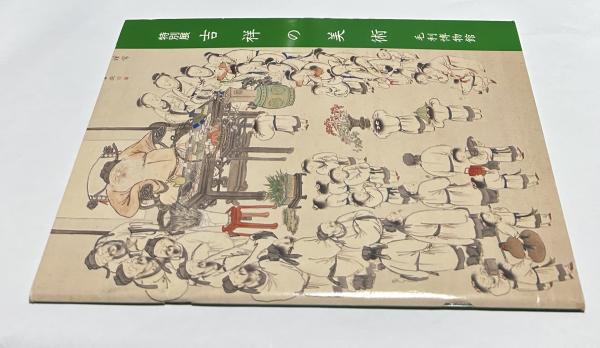 特別展 吉祥の美術 毛利博物館